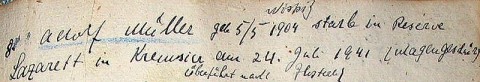 Adolf Müller geb 5/5 1904 starb in Reserve
Lazarett in Kremsier am 24. Juli 1941
überführt nach